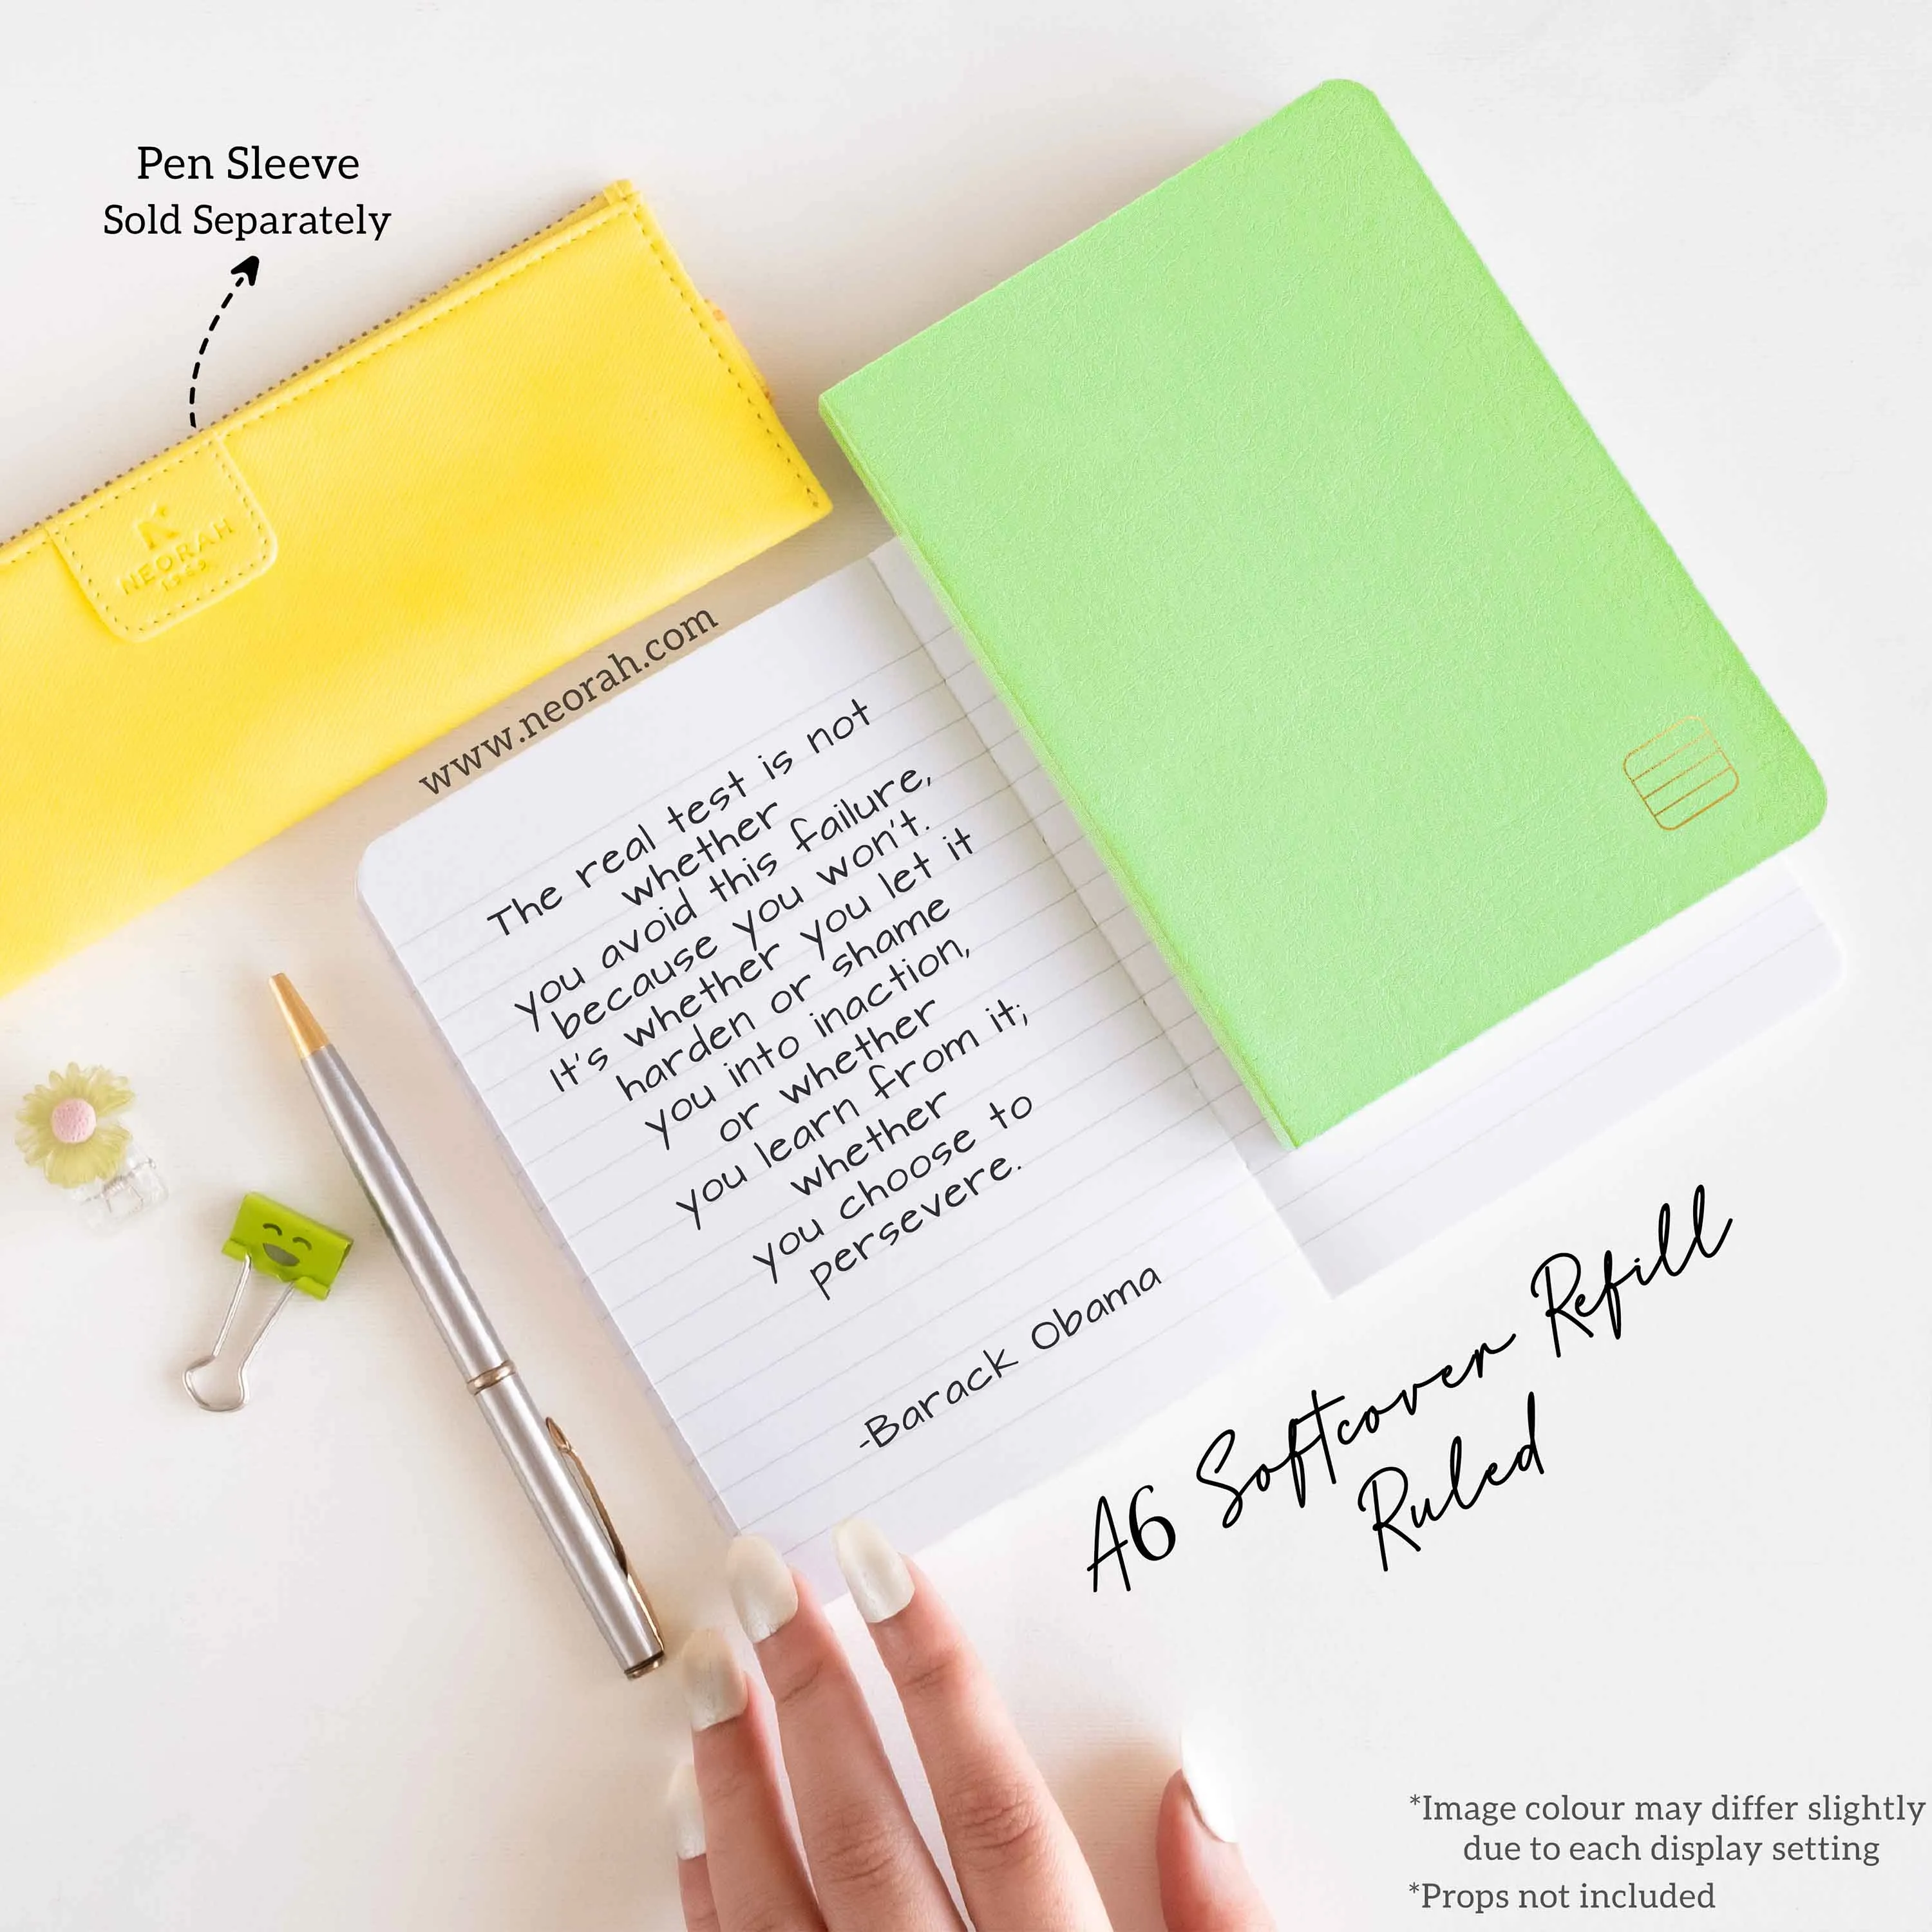 Pen Sleeve
Sold Separately
NEORAH
1969
www.neorah.com
The real test is not
whether
you avoid this failure,
because you won't.
It's whether you let it
harden or shame
you into inaction,
or whether
you learn from it;
whether
you choose to
persevere.
-Barack Obama
A6 Softcover Refill
Ruled
*Image colour may differ slightly
due to each display setting
*Props not included